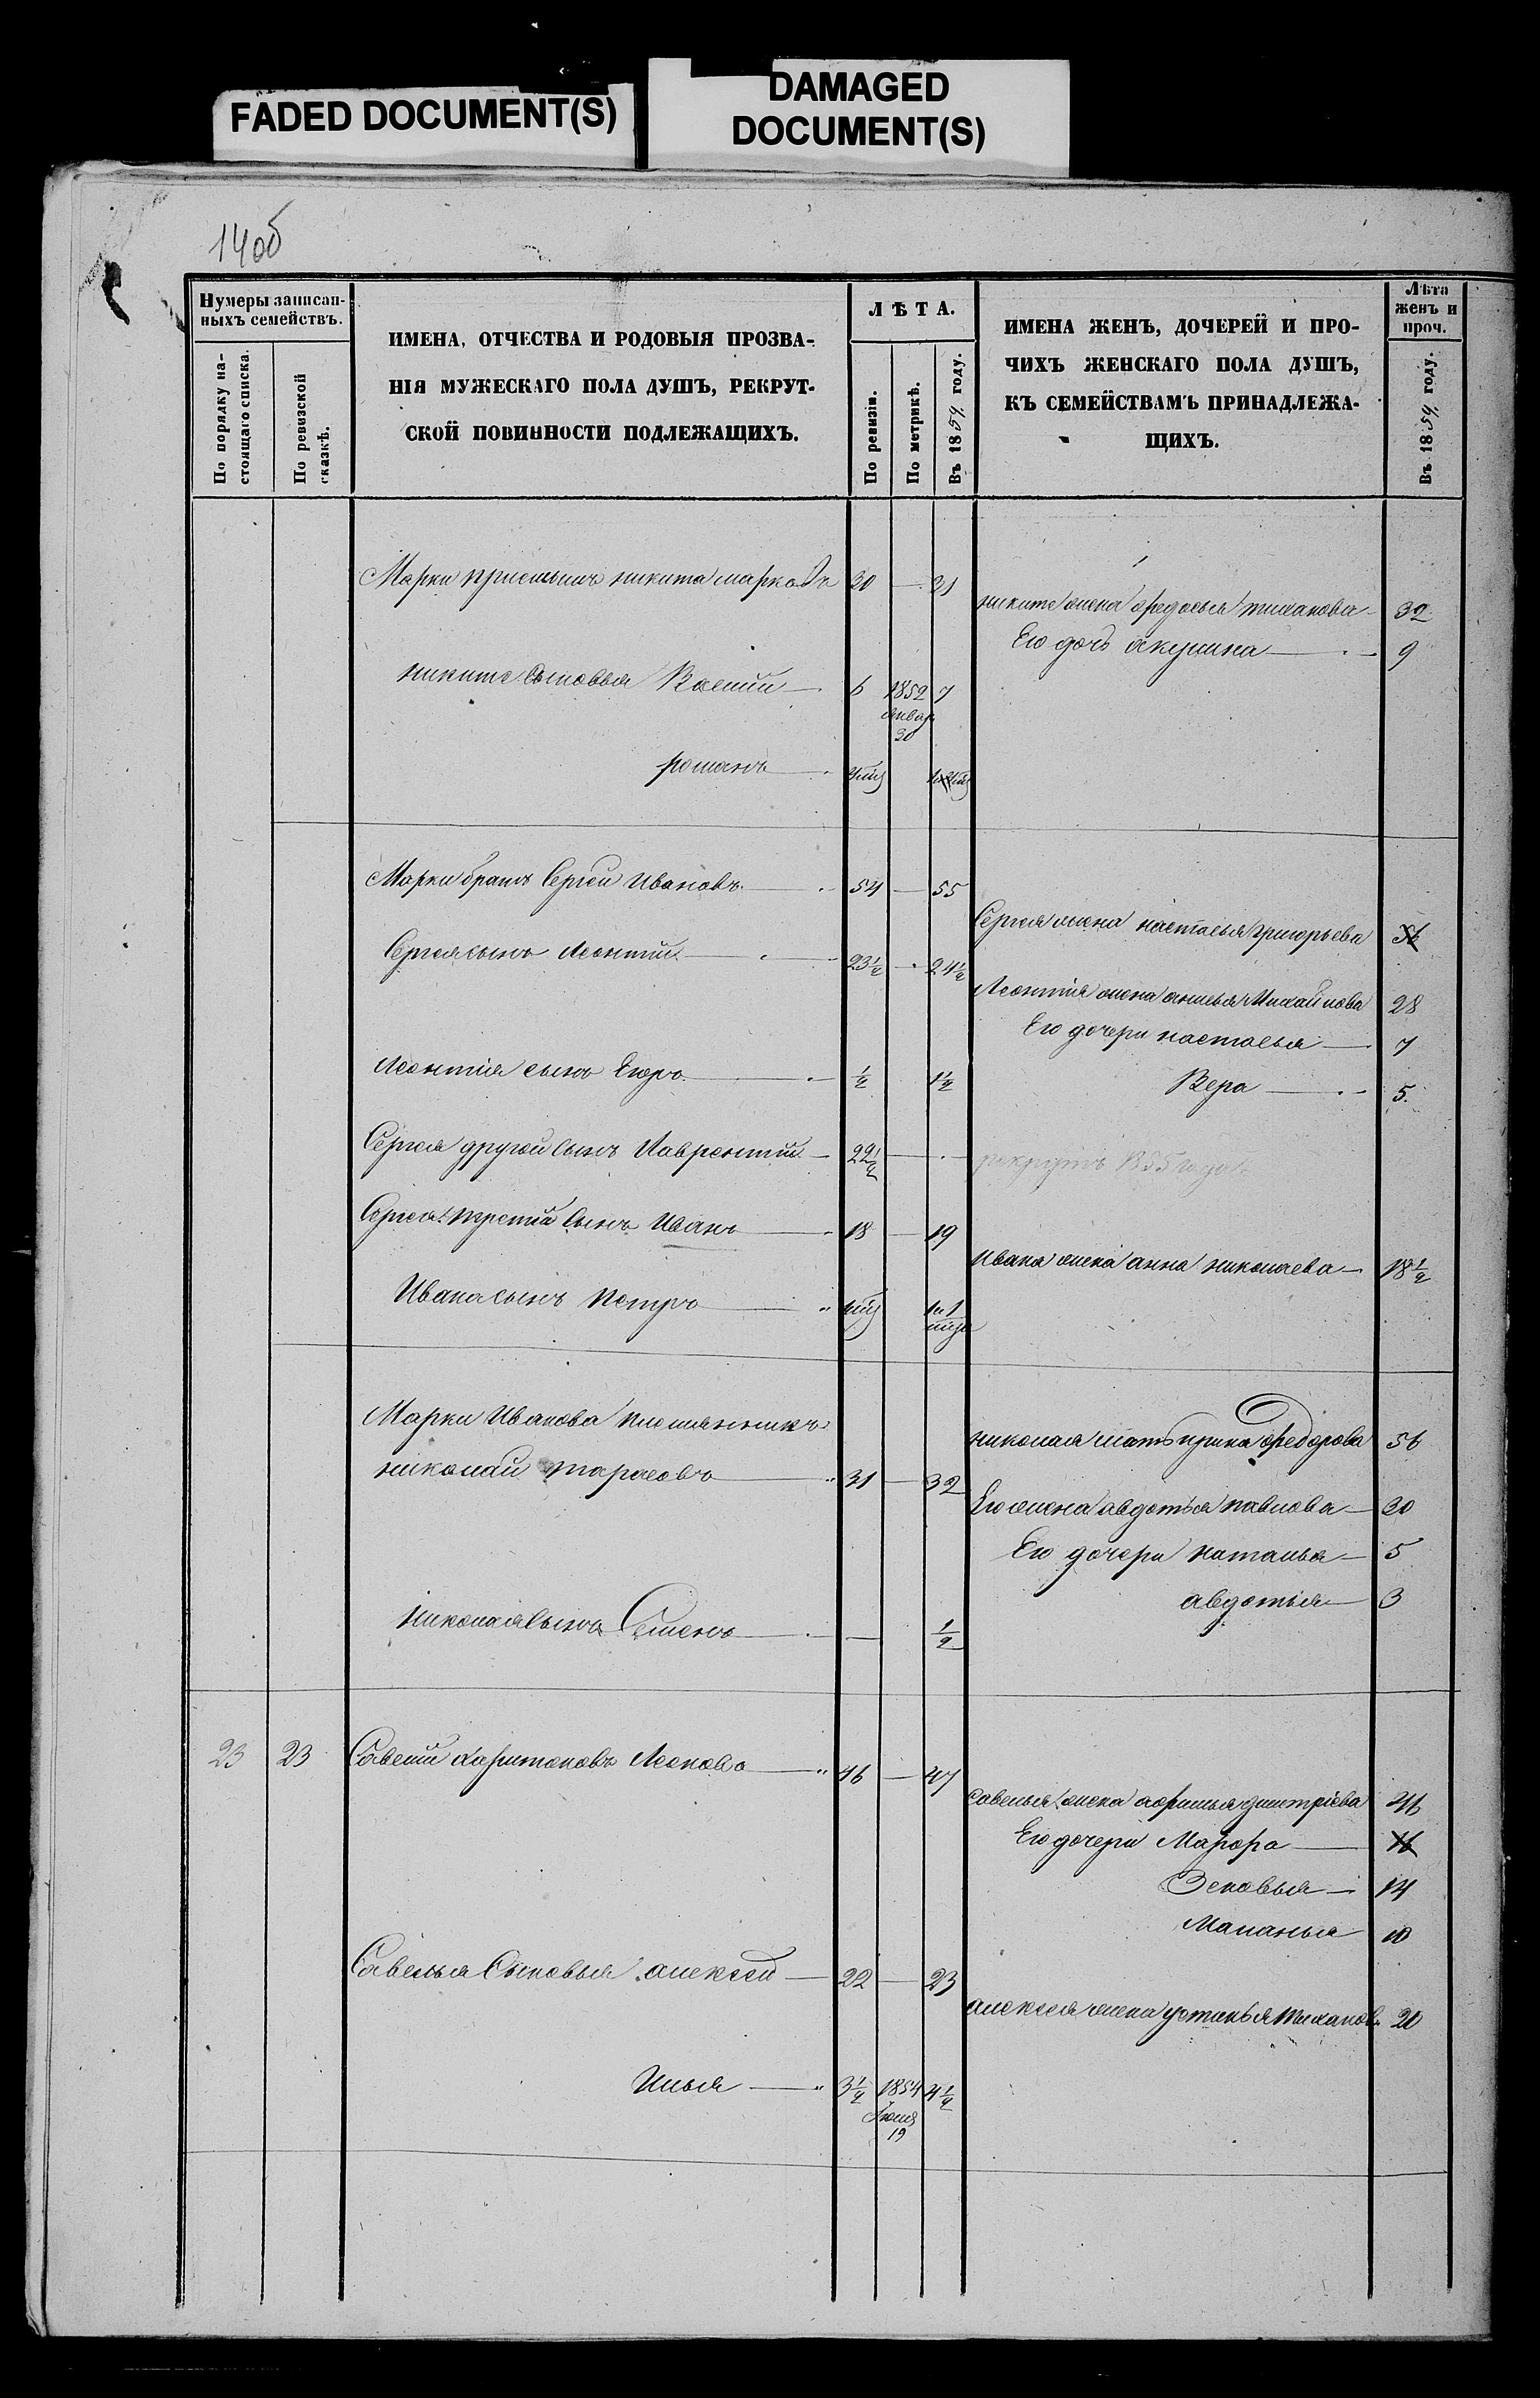 FADED DOCUMENT(S)
DAMAGED
DOCUMENT(S)
14об
Нумеры записан-
ныхъ семействъ.
По порядку на-
стоящаго списка.
По ревизской
сказкѣ.
ИМЕНА, ОТЧЕСТВА И РОДОВЫЯ ПРОЗВА-
НІЯ МУЖЕСКАГО ПОЛА ДУШЪ, РЕКРУТ-
СКОЙ ПОВИННОСТИ ПОДЛЕЖАЩИХЪ.
ЛѢТА.
По ревизіи.
По метрикѣ.
Въ 1859 году.
ИМЕНА ЖЕНЪ, ДОЧЕРЕЙ И ПРО-
ЧИХЪ ЖЕНСКАГО ПОЛА ДУШЪ,
КЪ СЕМЕЙСТВАМЪ ПРИНАДЛЕЖА-
ЩИХЪ.
Лѣта
женъ и
проч.
Въ 1859 году.
Марки приемышъ никита марковъ 30 — 31
никите жена федосья тиханова 32
Его дочь акулина — 9
никите Сыновья Васили — 6 1852 7
январ
30
романъ
Марки братъ Сергеи Ивановъ — 54 — 55
Сергея жена настасья григорьева 56
Сергея сынъ Леонтии — 23½ — 24½
Леонтия жена анисья Михаилова 28
Его дочери настасья — 7
Леонтия сынъ Егоръ — ½ 1½
Вера — 5
Сергея другой Сынъ Лаврентии — 22½ —
рекрутъ 1855 года
Сергея третий Сынъ Иванъ — 18 — 19
Ивана жена анна николаева — 18½
Ивана сынъ Петръ
Марки Иванова племянникъ
николаи тарасовъ — 31 — 32
николая мать ирина федорова 56
Его жена авдотья павлова — 30
Его дочери наталья — 5
авдотья — 3
Николая Сынъ Семенъ — — ½
23 23 Савели Харитоновъ Леоновъ — 46 — 47
савелья жена афимья дмитриева 46
Его дочери Марфа — 16
Зеновья — 14
Маланья 10
Савелья Сыновья алексеи — 22 — 23
алексея жена устинья тиханов. 20
Илья — 3½ 1854 4½
Июля
19